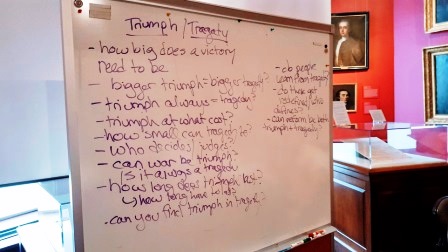 Triumph / Tragedy
- how big does a victory
need to be
- bigger triumph = bigger tragedy?
- triumph always = tragedy?
- triumph at what cost?
- how small can tragedy be?
- who decides / judges?
- can war be triumph?
Is it always a tragedy
- how long does triumph last?
how long have to last?
- can you find triumph in tragedy?
- do people
learn from tragedy
- do these get
who
defines?
- can reform be both
triumph + tragedy?